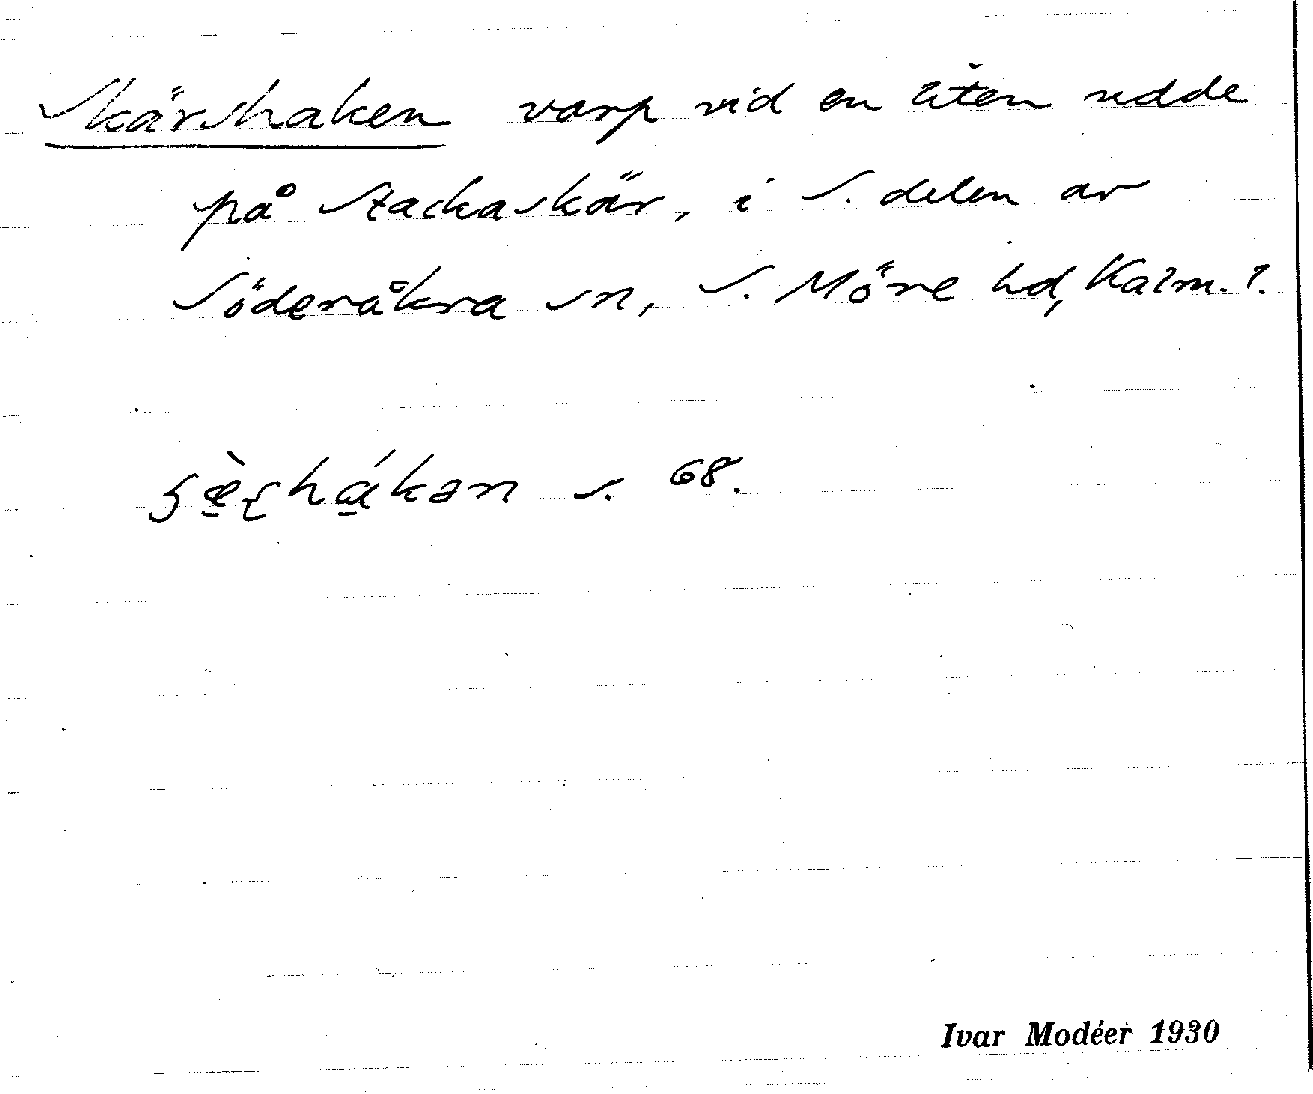 Skärshaken varp vid en liten udde
på Stackaskär, i S. delen av
Söderåkra sn, S. Möre hd, Kalm. l.
s. 68.
Ivar Modéer 1930